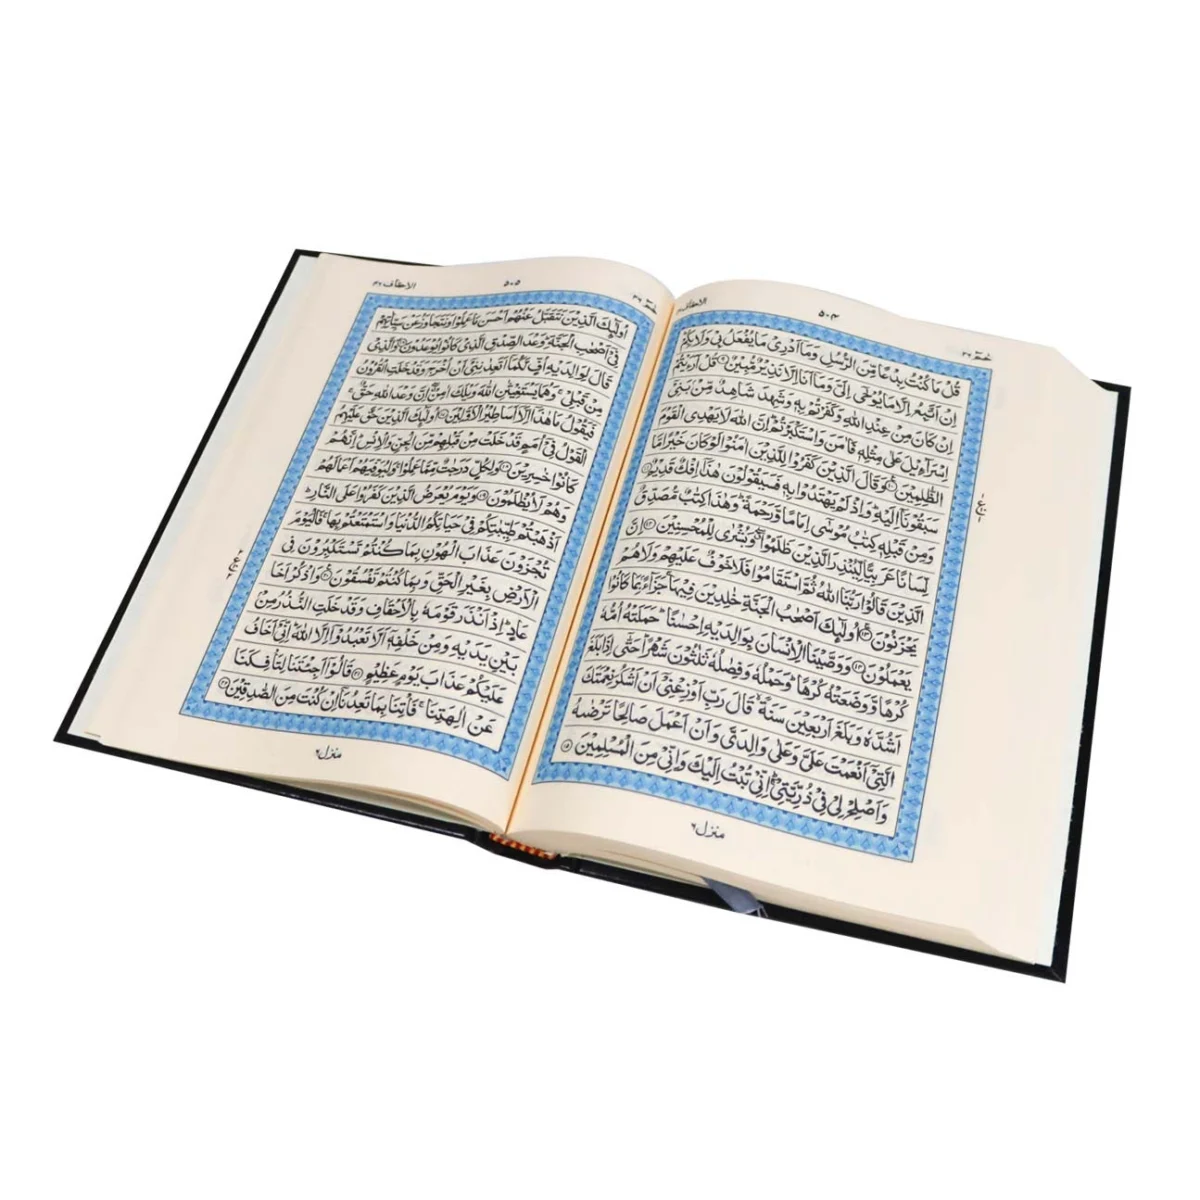 حٰمٓ ٢٦
٥٠٤
الاحقاف
قُلْ مَا كُنْتُ بِدْعًا مِّنَ الرُّسُلِ وَمَاۤ اَدْرِيْ مَا يُفْعَلُ بِيْ وَلَا بِكُمْ
اِنْ اَتَّبِعُ اِلَّا مَا يُوْحٰۤى اِلَيَّ وَمَاۤ اَنَا اِلَّا نَذِيْرٌ مُّبِيْنٌ ۝٩ قُلْ اَرَءَيْتُمْ
اِنْ كَانَ مِنْ عِنْدِ اللّٰهِ وَكَفَرْتُمْ بِهٖ وَشَهِدَ شَاهِدٌ مِّنْۢ بَنِيْۤ
اِسْرَآءِيْلَ عَلٰى مِثْلِهٖ فَاٰمَنَ وَاسْتَكْبَرْتُمْ اِنَّ اللّٰهَ لَا يَهْدِى الْقَوْمَ
الظّٰلِمِيْنَ ۝١٠ وَقَالَ الَّذِيْنَ كَفَرُوْا لِلَّذِيْنَ اٰمَنُوْا لَوْ كَانَ خَيْرًا مَّا
سَبَقُوْنَاۤ اِلَيْهِ وَاِذْ لَمْ يَهْتَدُوْا بِهٖ فَسَيَقُوْلُوْنَ هٰذَاۤ اِفْكٌ قَدِيْمٌ ۝١١
وَمِنْ قَبْلِهٖ كِتٰبُ مُوْسٰۤى اِمَامًا وَّرَحْمَةً وَهٰذَا كِتٰبٌ مُّصَدِّقٌ
لِّسَانًا عَرَبِيًّا لِّيُنْذِرَ الَّذِيْنَ ظَلَمُوْا وَبُشْرٰى لِلْمُحْسِنِيْنَ ۝١٢ اِنَّ
الَّذِيْنَ قَالُوْا رَبُّنَا اللّٰهُ ثُمَّ اسْتَقَامُوْا فَلَا خَوْفٌ عَلَيْهِمْ وَلَا هُمْ
يَحْزَنُوْنَ ۝١٣ اُولٰٓئِكَ اَصْحٰبُ الْجَنَّةِ خٰلِدِيْنَ فِيْهَا جَزَآءً بِمَا كَانُوْا
يَعْمَلُوْنَ ۝١٤ وَوَصَّيْنَا الْاِنْسَانَ بِوَالِدَيْهِ اِحْسٰنًا حَمَلَتْهُ اُمُّهٗ
كُرْهًا وَّوَضَعَتْهُ كُرْهًا وَحَمْلُهٗ وَفِصٰلُهٗ ثَلٰثُوْنَ شَهْرًا حَتّٰۤى اِذَا بَلَغَ
اَشُدَّهٗ وَبَلَغَ اَرْبَعِيْنَ سَنَةً قَالَ رَبِّ اَوْزِعْنِيْۤ اَنْ اَشْكُرَ نِعْمَتَكَ
الَّتِيْۤ اَنْعَمْتَ عَلَيَّ وَعَلٰى وَالِدَيَّ وَاَنْ اَعْمَلَ صَالِحًا تَرْضٰىهُ
وَاَصْلِحْ لِيْ فِيْ ذُرِّيَّتِيْ اِنِّيْ تُبْتُ اِلَيْكَ وَاِنِّيْ مِنَ الْمُسْلِمِيْنَ ۝١٥
منزل ٦
حٰمٓ ٢٦
٥٠٥
الاحقاف ٤٦
اُولٰٓئِكَ الَّذِيْنَ نَتَقَبَّلُ عَنْهُمْ اَحْسَنَ مَا عَمِلُوْا وَنَتَجَاوَزُ عَنْ سَيِّاٰتِهِمْ
فِيْۤ اَصْحٰبِ الْجَنَّةِ وَعْدَ الصِّدْقِ الَّذِيْ كَانُوْا يُوْعَدُوْنَ ۝١٦ وَالَّذِيْ
قَالَ لِوَالِدَيْهِ اُفٍّ لَّكُمَاۤ اَتَعِدٰنِنِيْۤ اَنْ اُخْرَجَ وَقَدْ خَلَتِ الْقُرُوْنُ
مِنْ قَبْلِيْ وَهُمَا يَسْتَغِيْثٰنِ اللّٰهَ وَيْلَكَ اٰمِنْ اِنَّ وَعْدَ اللّٰهِ حَقٌّ
فَيَقُوْلُ مَا هٰذَاۤ اِلَّاۤ اَسَاطِيْرُ الْاَوَّلِيْنَ ۝١٧ اُولٰٓئِكَ الَّذِيْنَ حَقَّ عَلَيْهِمُ
الْقَوْلُ فِيْۤ اُمَمٍ قَدْ خَلَتْ مِنْ قَبْلِهِمْ مِّنَ الْجِنِّ وَالْاِنْسِ اِنَّهُمْ
كَانُوْا خٰسِرِيْنَ ۝١٨ وَلِكُلٍّ دَرَجٰتٌ مِّمَّا عَمِلُوْا وَلِيُوَفِّيَهُمْ اَعْمَالَهُمْ
وَهُمْ لَا يُظْلَمُوْنَ ۝١٩ وَيَوْمَ يُعْرَضُ الَّذِيْنَ كَفَرُوْا عَلَى النَّارِ
اَذْهَبْتُمْ طَيِّبٰتِكُمْ فِيْ حَيَاتِكُمُ الدُّنْيَا وَاسْتَمْتَعْتُمْ بِهَا فَالْيَوْمَ
تُجْزَوْنَ عَذَابَ الْهُوْنِ بِمَا كُنْتُمْ تَسْتَكْبِرُوْنَ فِى
الْاَرْضِ بِغَيْرِ الْحَقِّ وَبِمَا كُنْتُمْ تَفْسُقُوْنَ ۝٢٠ وَاذْكُرْ اَخَا
عَادٍ اِذْ اَنْذَرَ قَوْمَهٗ بِالْاَحْقَافِ وَقَدْ خَلَتِ النُّذُرُ مِنْۢ
بَيْنِ يَدَيْهِ وَمِنْ خَلْفِهٖۤ اَلَّا تَعْبُدُوْۤا اِلَّا اللّٰهَ اِنِّيْۤ اَخَافُ
عَلَيْكُمْ عَذَابَ يَوْمٍ عَظِيْمٍ ۝٢١ قَالُوْۤا اَجِئْتَنَا لِتَاْفِكَنَا
عَنْ اٰلِهَتِنَا فَاْتِنَا بِمَا تَعِدُنَاۤ اِنْ كُنْتَ مِنَ الصّٰدِقِيْنَ ۝٢٢
منزل ٦